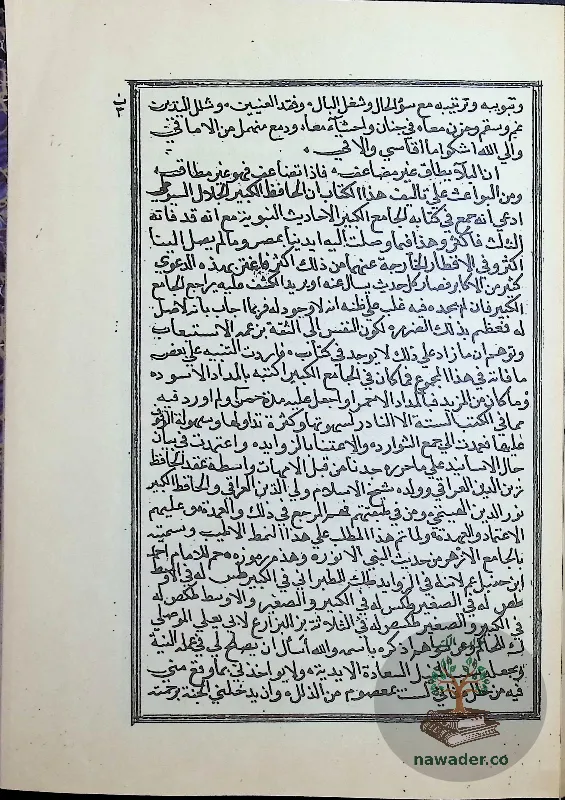 وتبويبه وترتيبه مع سوء الحال وشغل البال وفقد المعينين وشلل اليدين
غم وسقم وحزن معاه في جنان واحشاء معاه ودمع منهمل من الاماقي
والي الله اشكو ما اقاسي والاقي
ان البلا يطاق غير مضاعف فاذا تضاعف فهو غير مطاق
ومن البواعث علي تاليف هذا الكتاب ان الحافظ الكبير الجلال السيوطي
ادعي انه جمع في كتابه الجامع الكبير الاحاديث النبوية مع انه قد فاته
الثلث فاكثر وهذا فيما وصلت اليه ايدينا بمصر وما لم يصل الينا
اكثر وفي الاقطار الخارجة عنها من ذلك اكثر فاغتر بهذه الدعوي
كثير من الاكابر فصار كل حديث يسال عنه او يريد الكشف عليه يراجع الجامع
الكبير فان لم يجده فيه غلب علي ظنه انه لا وجود له فربما اجاب بانه لا اصل
له فعظم بذلك الضرر لكون النفس الي الثقة بزعمه الاستيعاب
وتوهم ان ما زاد علي ذلك لا يوجد في كتاب واردت التنبيه علي بعض
ما فاته في هذا المجموع فما كان في الجامع الكبير اكتبه بالمداد الاسود
وما كان من المزيد فبالمداد الاحمر او اجعل عليه مدة حمرا ولم اورد فيه
مما في الكتب الستة الا النادر لشهرتها وكثرة تداولها وسهولة الوقوف
عليها فعمدت الي جمع الشوارد والاعتنا بالزوايد واعتمدت في بيان
حال الاسانيد علي ما حرره جدنا من قبل الامهات واسطة عقد الحافظ
زين الدين العراقي وولده شيخ الاسلام ولي الدين العراقي والحافظ الكبير
نور الدين الهيثمي ومن في طبقتهم فهم المرجع في ذلك والعمدة وعليهم
الاعتماد والعهدة ولما تم هذا المطلب علي هذا النمط الاطيب وسميته
بالجامع الازهر من حديث النبي الانور وهذه رموزه حم للامام احمد
ابن حنبل عم لابنه في الزوايد طك للطبراني في الكبير طس له في الاوسط
طص له في الصغير طكس له في الكبير والاوسط طكص له
في الكبير والصغير طكسص له في الثلاثة بز للبزار ع لابي يعلي الموصلي
ك للحاكم وغير هو اهر اذكره باسمه والله أسأل ان يصلح لي فيه النية
ويجعله السعادة الابدية ولا يواخذني بما وقع مني
فيه من خلل بمعصوم من الزلل وان يدخلني الجنة برحمته
nawader.co